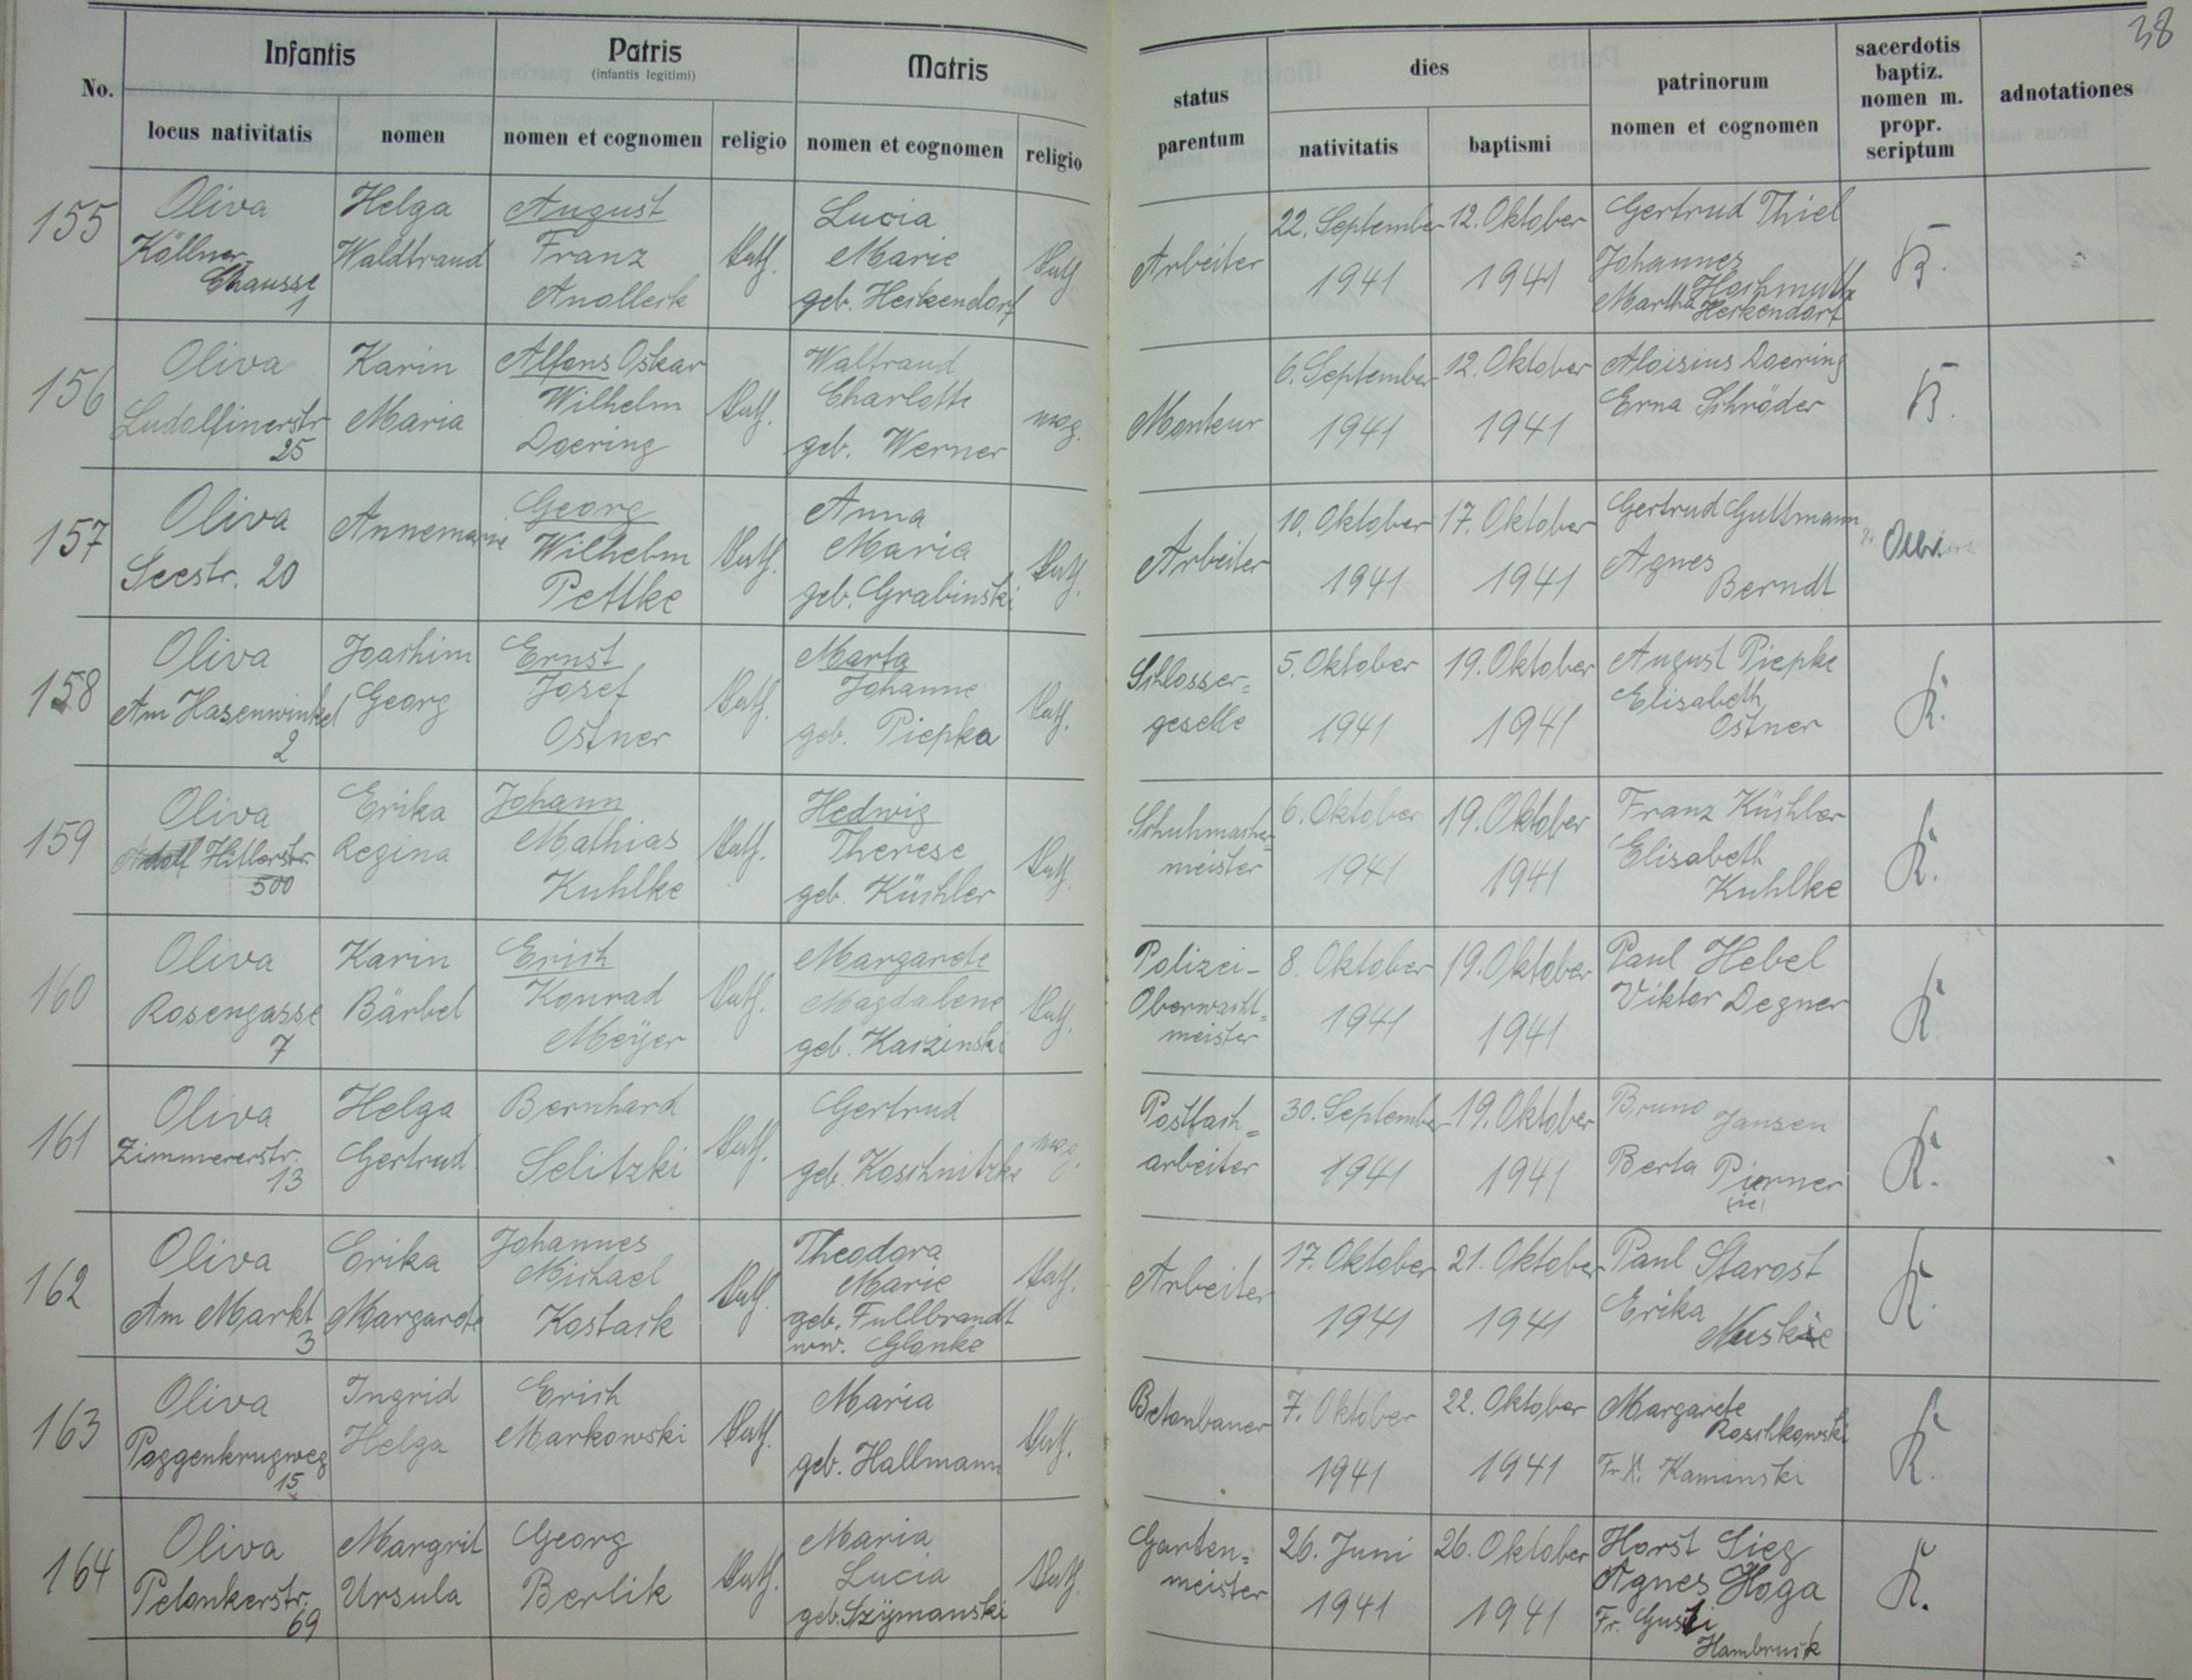 38
No.
Infantis
Patris
(infantis legitimi)
Matris
status
parentum
dies
patrinorum
nomen et cognomen
sacerdotis
baptiz.
nomen m.
propr.
scriptum
adnotationes
locus nativitatis
nomen
nomen et cognomen
religio
nomen et cognomen
religio
nativitatis
baptismi
155
Oliva
Köllner-
Chausse
1
Helga
Waldtraud
August
Franz
kath.
Lucia
Marie
geb. Heikendorf
kath.
Arbeiter
22. September
1941
12. Oktober
1941
Gertrud Thiel
Johannes
Hochmuth
Martha Herkendorf
B.
156
Oliva
Ludolfinerstr
25
Karin
Maria
Alfons Oskar
Wilhelm
Doering
kath.
Waltraud
Charlotte
geb. Werner
Monteur
6. September
1941
12. Oktober
1941
Aloisius Doering
Erna Schröder
B.
157
Oliva
Seestr. 20
Annemarie
Georg
Wilhelm
Pettke
kath.
Anna
Maria
geb. Grabinski
kath.
Arbeiter
10. Oktober
1941
17. Oktober
1941
Gertrud Guttmann
Agnes
Berndt
158
Oliva
Am Hasenwinkel
2
Joachim
Georg
Ernst
Josef
Ostner
kath.
Marta
Johanne
geb. Piepka
kath.
Schlosser=
geselle
5. Oktober
1941
19. Oktober
1941
August Piepke
Elisabeth
Ostner
K.
159
Oliva
Adolf Hitlerstr.
500
Erika
Regina
Johann
Mathias
Kuhlke
kath.
Hedwig
Therese
geb. Küchler
kath.
Schuhmacher=
meister
6. Oktober
1941
19. Oktober
1941
Franz Küchler
Elisabeth
Kuhlke
K.
160
Oliva
Rosengasse
7
Karin
Bärbel
Erich
Konrad
Meÿer
kath.
Margarete
Magdalene
geb. Karzinski
kath.
Polizei-
Oberwacht=
meister
8. Oktober
1941
19. Oktober
1941
Paul Hebel
Viktor Degner
K.
161
Oliva
Zimmererstr.
13
Helga
Gertrud
Bernhard
Selitzki
kath.
Gertrud
geb. Koschnitzke
Postfach=
arbeiter
30. September
1941
19. Oktober
1941
Bruno Jansen
Berta Pierner
(ie)
K.
162
Oliva
Am Markt
3
Erika
Margarete
Johannes
Michael
Kostack
kath.
Theodora
Marie
geb. Füllbrandt
ww. Glanke
kath.
Arbeiter
17. Oktober
1941
21. Oktober
1941
Paul Starost
Erika
K.
163
Oliva
Poggenkrugweg
15
Ingrid
Helga
Erich
Markowski
kath.
Maria
geb. Hallmann
kath.
Betonbauer
7. Oktober
1941
22. Oktober
1941
Margarete
Roschkowski
Fr. X. Kaminski
K.
164
Oliva
Pelonkerstr.
69
Margrit
Ursula
Georg
Berlik
kath.
Maria
Lucia
geb. Szÿmanski
kath.
Garten=
meister
26. Juni
1941
26. Oktober
1941
Horst Sieg
Agnes Hoga
Fr. Gusti
Hambruck
K.